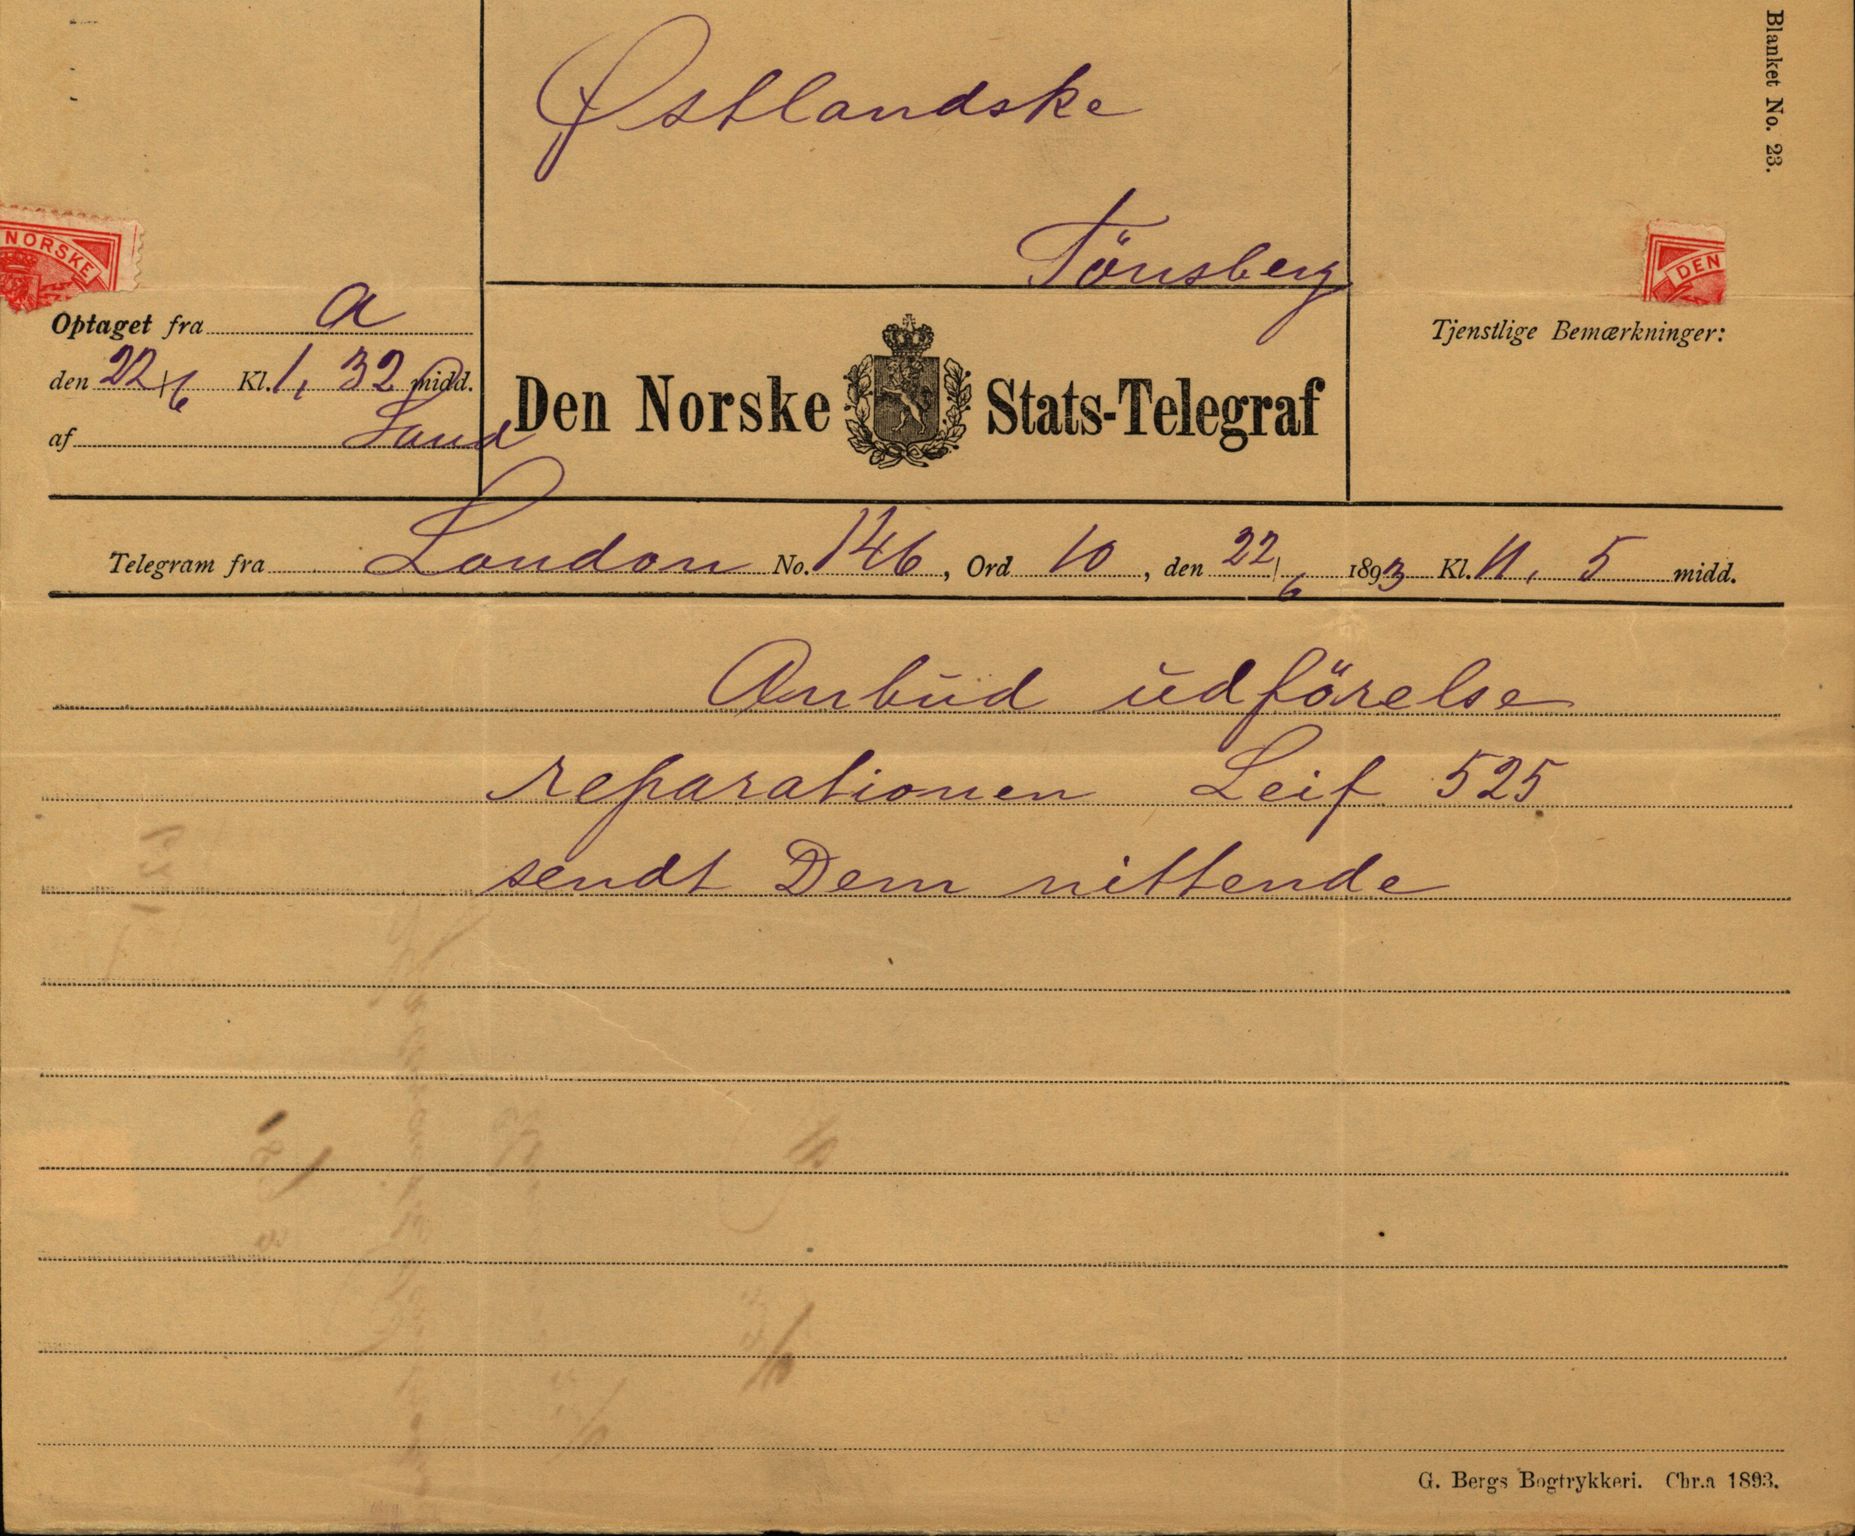 Blanket No. 23.
Østlandske
Tönsberg
NORSKE
DEN
Optaget fra a
den 22/6 Kl. 1,32 midd.
af Sand
Den Norske Stats-Telegraf
Tjenstlige Bemærkninger:
Telegram fra London No. 146, Ord 10, den 22/6 1893 Kl. 11,5 midd.
Anbud udförelse
reparationen Leif 525
sendt Dem nittende
G. Bergs Bogtrykkeri. Chr.a 1893.